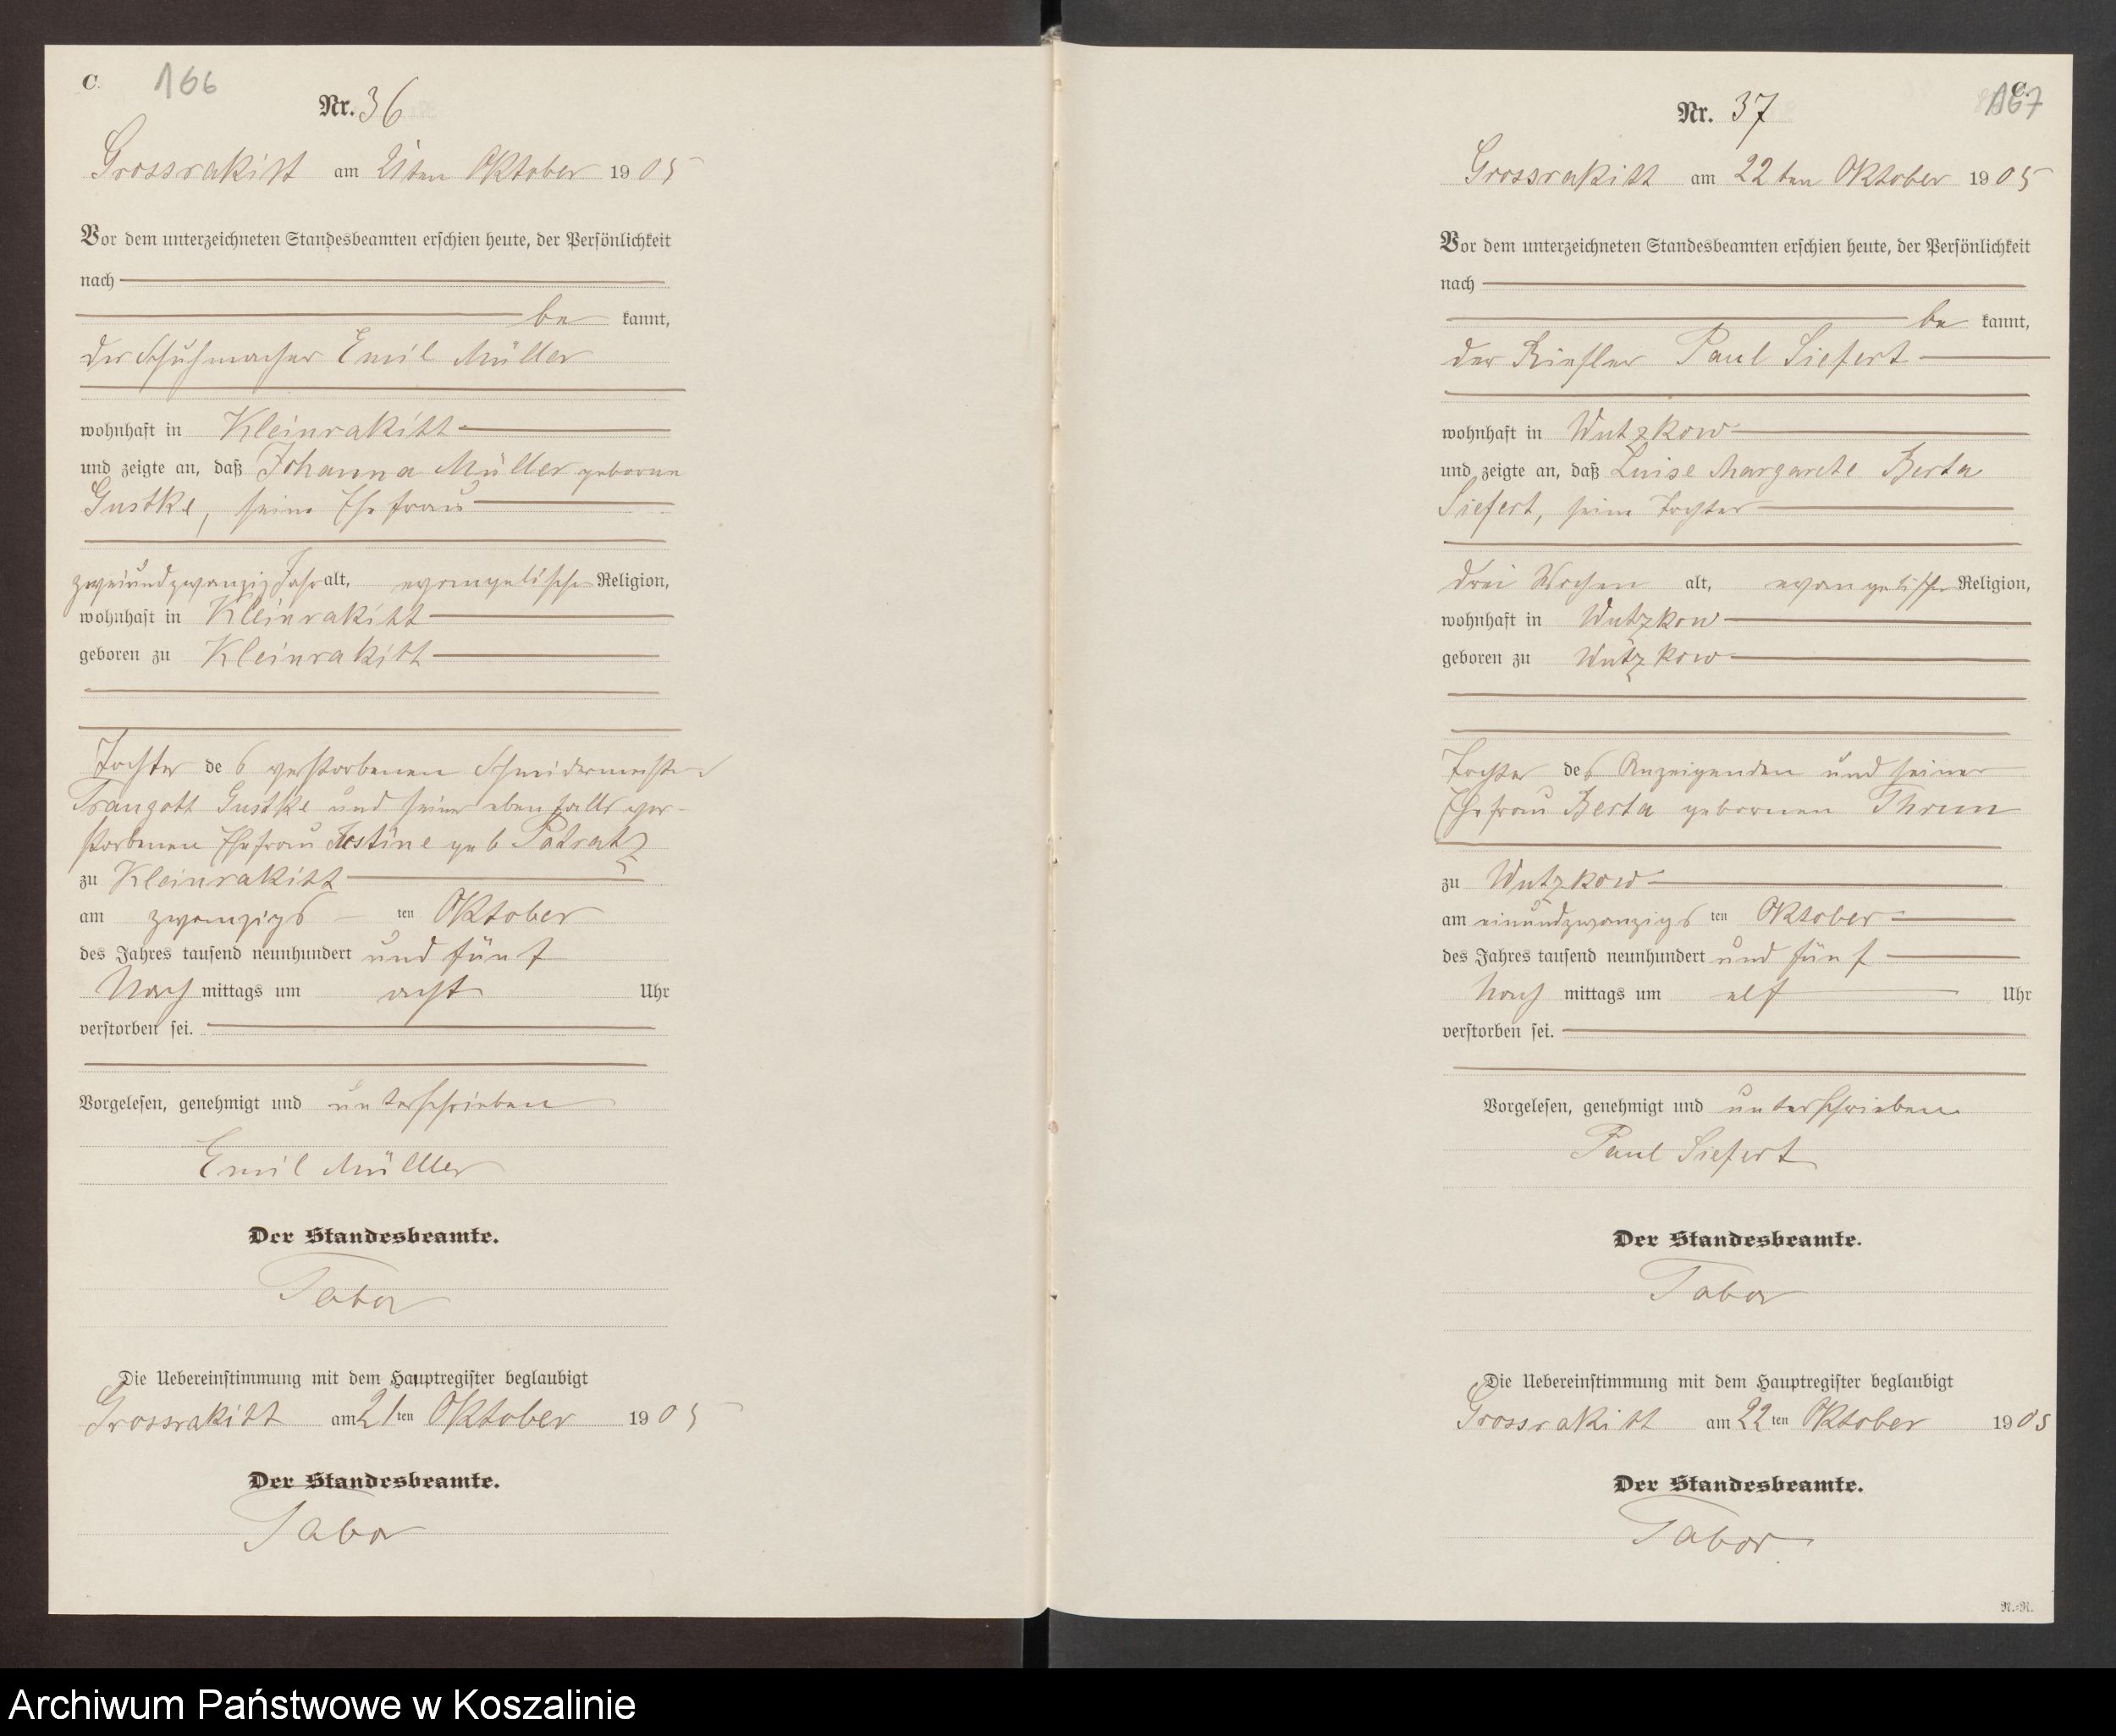 C. 166
Nr. 36
Grossrakitt am 21ten Oktober 1905
Vor dem unterzeichneten Standesbeamten erschien heute, der Persönlichkeit
nach
be kannt,
der Schuhmacher Emil Müller
wohnhaft in Kleinrakitt
und zeigte an, daß Johanna Müller geborne
Gustke, seine Ehefrau
zweiundzwanzig Jahr alt, evangelischer Religion,
wohnhaft in Kleinrakitt
geboren zu Kleinrakitt
Tochter des verstorbenen Schneidermeister
Traugott Gustke und seiner ebenfalls ver-
storbenen Ehefrau geb Patratz
zu Kleinrakitt
am zwanzigs ten Oktober
des Jahres tausend neunhundert und fünf
Nach mittags um acht Uhr
verstorben sei.
Vorgelesen, genehmigt und unterschrieben
Emil Müller
Der Standesbeamte.
Tabor
Die Uebereinstimmung mit dem Hauptregister beglaubigt
Grossrakitt am 21 ten Oktober 1905
Der Standesbeamte.
Tabor
C. 167
Nr. 37
Grossrakitt am 22ten Oktober 1905
Vor dem unterzeichneten Standesbeamten erschien heute, der Persönlichkeit
nach
be kannt,
der Paul Siefert
wohnhaft in Wutzkow
und zeigte an, daß Luise Margarete Berta
Siefert, seine Tochter
drei Wochen alt, evangelischer Religion,
wohnhaft in Wutzkow
geboren zu Wutzkow
Tochter des Anzeigenden und seiner
Ehefrau Berta gebornen Thrun
zu Wutzkow
am einundzwanzigs ten Oktober
des Jahres tausend neunhundert und fünf
Nach mittags um elf Uhr
verstorben sei.
Vorgelesen, genehmigt und unterschrieben
Paul Siefert
Der Standesbeamte.
Tabor
Die Uebereinstimmung mit dem Hauptregister beglaubigt
Grossrakitt am 22 ten Oktober 1905
Der Standesbeamte.
Tabor
N.=N.
Archiwum Państwowe w Koszalinie